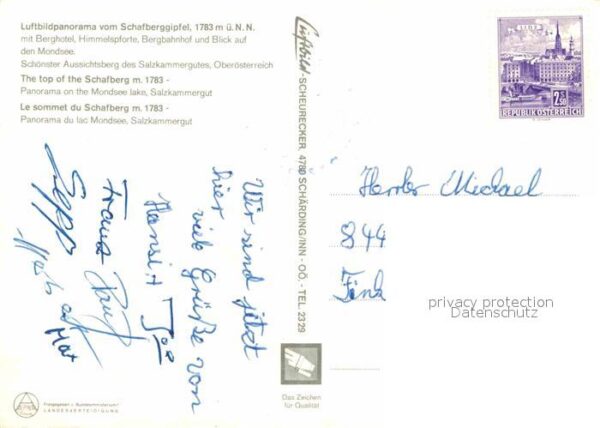 Luftbildpanorama vom Schafberggipfel, 1783 m ü. N. N.
mit Berghotel, Himmelspforte, Bergbahnhof und Blick auf
den Mondsee.
Schönster Aussichtsberg des Salzkammergutes, Oberösterreich
The top of the Schafberg m. 1783 -
Panorama on the Mondsee lake, Salzkammergut
Le sommet du Schafberg m. 1783 -
Panorama du lac Mondsee, Salzkammergut
Wir sind jetzt
hier
viele Grüße von
Hansi +
Franz
Sepp
Luftbild-SCHEURECKER, 4780 SCHÄRDING/INN - OÖ. - TEL. 2329
LINZ
2.50
REPUBLIK ÖSTERREICH
Michael
844
privacy protection
Datenschutz
Freigegeben v. Bundesministerium f.
LANDESVERTEIDIGUNG
Das Zeichen
für Qualität